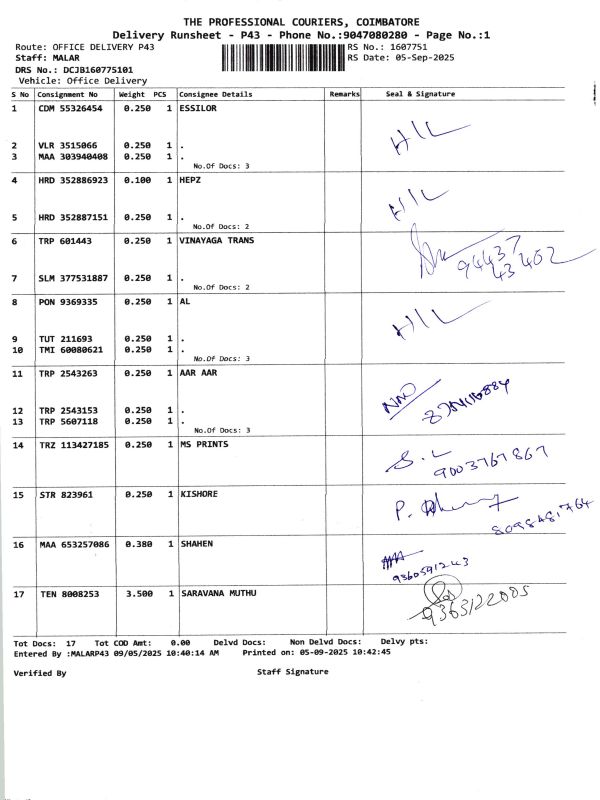 THE PROFESSIONAL COURIERS, COIMBATORE
Delivery Runsheet - P43 - Phone No.:9047080280 - Page No.:1
Route: OFFICE DELIVERY P43 RS No.: 1607751
Staff: MALAR RS Date: 05-Sep-2025
DRS No.: DCJB160775101
Vehicle: Office Delivery
S No Consignment No Weight PCS Consignee Details Remarks Seal & Signature
1 CDM 55326454 0.250 1 ESSILOR
2 VLR 3515066 0.250 1 .
3 MAA 303940408 0.250 1 .
No.Of Docs: 3
4 HRD 352886923 0.100 1 HEPZ
5 HRD 352887151 0.250 1 .
No.Of Docs: 2
6 TRP 601443 0.250 1 VINAYAGA TRANS
94437
43402
7 SLM 377531887 0.250 1 .
No.Of Docs: 2
8 PON 9369335 0.250 1 AL
9 TUT 211693 0.250 1 .
10 TMI 60080621 0.250 1 .
No.Of Docs: 3
11 TRP 2543263 0.250 1 AAR AAR
12 TRP 2543153 0.250 1 .
13 TRP 5607118 0.250 1 .
No.Of Docs: 3
14 TRZ 113427185 0.250 1 MS PRINTS
9003767867
15 STR 823961 0.250 1 KISHORE
8098481764
16 MAA 653257086 0.380 1 SHAHEN
9360591243
17 TEN 8008253 3.500 1 SARAVANA MUTHU
9363122005
Tot Docs: 17 Tot COD Amt: 0.00 Delvd Docs: Non Delvd Docs: Delvy pts:
Entered By :MALARP43 09/05/2025 10:40:14 AM Printed on: 05-09-2025 10:42:45
Verified By Staff Signature